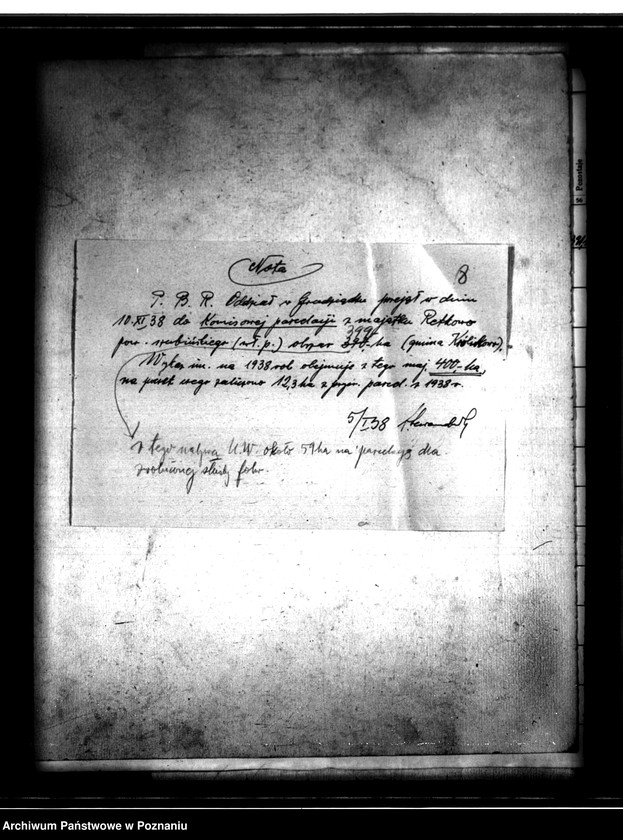 Nota
8
P. B. R. Oddział w Grudziądzu przejął w dniu
10.XI.38 do Komisowej parcelacji z majątku Retkowo
pow. szubińskiego (wł. p.) obszar 399 ha (gmina Królikowo),
Wykaz im. na 1938 rok obejmuje z tego maj. 400 ha,
na poczet czego zaliczono 12,3 ha z paru. parcel. z 1938 r.
5/I 38
z tego nabywa U.W. około 59 ha na parcelację dla
służby folw.
Pozostaje
Archiwum Państwowe w Poznaniu